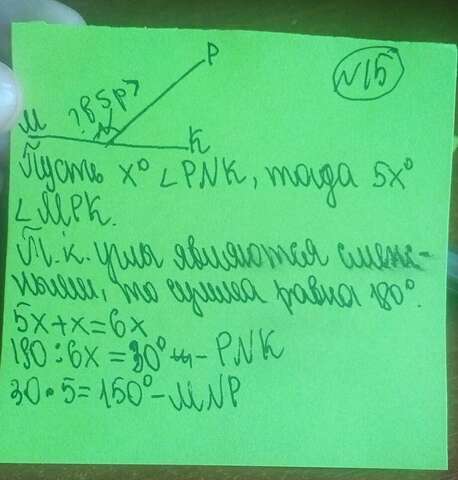 №15
P
? в 5р >
M N K
Пусть x° ∠PNK, тогда 5x°
∠MPK.
Т.к. углы являются смеж-
ными, то сумма равна 180°.
5x+x=6x
180:6x=30° - PNK
30·5=150° - MNP